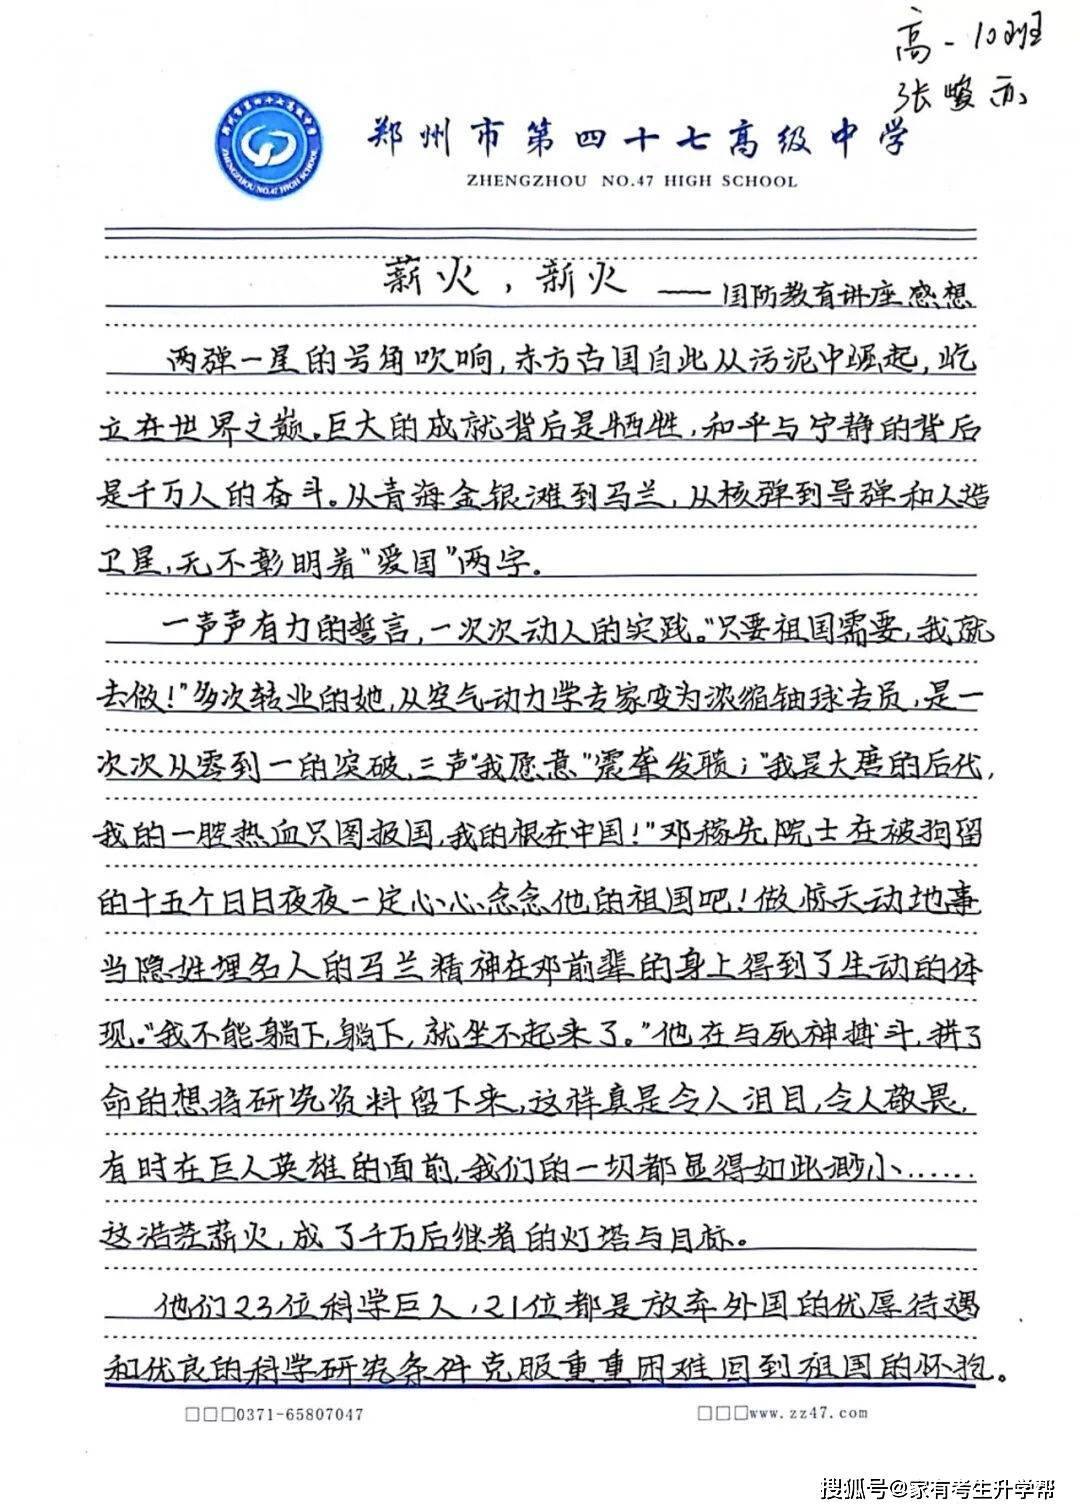 高一10班
张峻亦
郑州市第四十七高级中学
ZHENGZHOU NO.47 HIGH SCHOOL
郑州市第四十七高级中学
ZHENGZHOU NO.47 HIGH SCHOOL
薪火，新火 ——国防教育讲座感想
两弹一星的号角吹响，东方古国自此从污泥中崛起，屹
立在世界之巅。巨大的成就背后是牺牲，和平与宁静的背后
是千万人的奋斗。从青海金银滩到马兰，从核弹到导弹和人造
卫星，无不彰明着“爱国”两字。
一声声有力的誓言，一次次动人的实践。“只要祖国需要，我就
去做！”多次转业的她，从空气动力学专家变为浓缩铀球专员，是一
次次从零到一的突破，三声“我愿意”震聋发聩；“我是大唐的后代，
我的一腔热血只图报国，我的根在中国！”邓稼先院士在被拘留
的十五个日日夜夜一定心心念念他的祖国吧！做惊天动地事
当隐姓埋名人的马兰精神在邓前辈的身上得到了生动的体
现。“我不能躺下，躺下，就坐不起来了。”他在与死神搏斗，拼了
命的想将研究资料留下来，这样真是令人泪目，令人敬畏，
有时在巨人英雄的面前，我们的一切都显得如此渺小……
这浩茫薪火，成了千万后继者的灯塔与目标。
他们23位科学巨人，21位都是放弃外国的优厚待遇
和优良的科学研究条件克服重重困难回到祖国的怀抱。
□□□0371-65807047
□□□www.zz47.com
搜狐号@家有考生升学帮